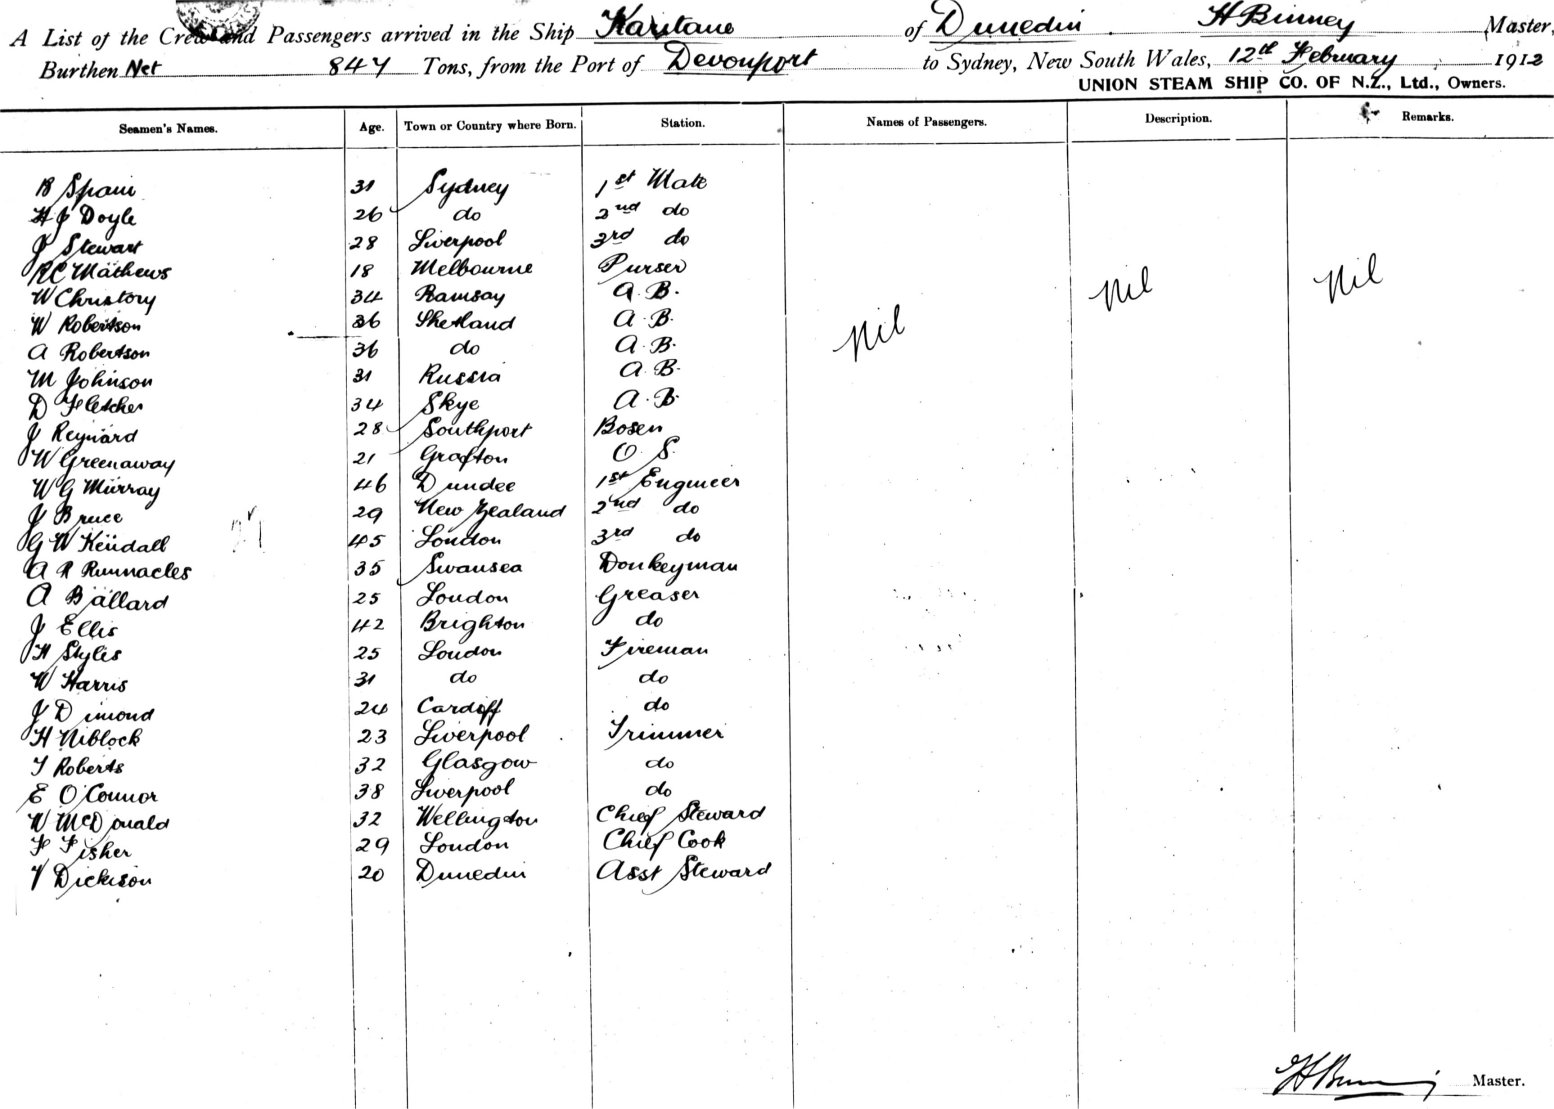 A List of the Crew and Passengers arrived in the Ship Karitane of Dunedin H Binney Master,
Burthen Net 847 Tons, from the Port of Devonport to Sydney, New South Wales, 12th February 1912
UNION STEAM SHIP CO. OF N.Z., Ltd., Owners.
Seamen's Names. Age. Town or Country where Born. Station. Names of Passengers. Description. Remarks.
B Spain 31 Sydney 1st Mate
H J Doyle 26 do 2nd do
J Stewart 28 Liverpool 3rd do
R C Mathews 18 Melbourne Purser
W Christory 34 Ramsay A.B.
W Robertson 36 Shetland A.B.
A Robertson 36 do A.B.
M Johnson 31 Russia A.B.
D Fletcher 34 Skye A.B.
J Reynard 28 Southport Bosen
W Greenaway 21 Grafton O S.
W G Murray 46 Dundee 1st Engineer
J Bruce 29 New Zealand 2nd do
G W Kendall 45 London 3rd do
A R Runnacles 35 Swansea Donkeyman
A Ballard 25 London Greaser
J Ellis 42 Brighton do
H Styles 25 London Fireman
W Harris 31 do do
J Dimond 24 Cardiff do
H Niblock 23 Liverpool Trimmer
T Roberts 32 Glasgow do
E O'Connor 38 Liverpool do
W McDonald 32 Wellington Chief Steward
F Fisher 29 London Chief Cook
V Dickison 20 Dunedin Asst Steward
Nil Nil Nil
H Binney Master.